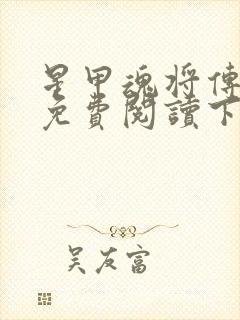 星甲魂将傳
免費閱讀下
吴友富